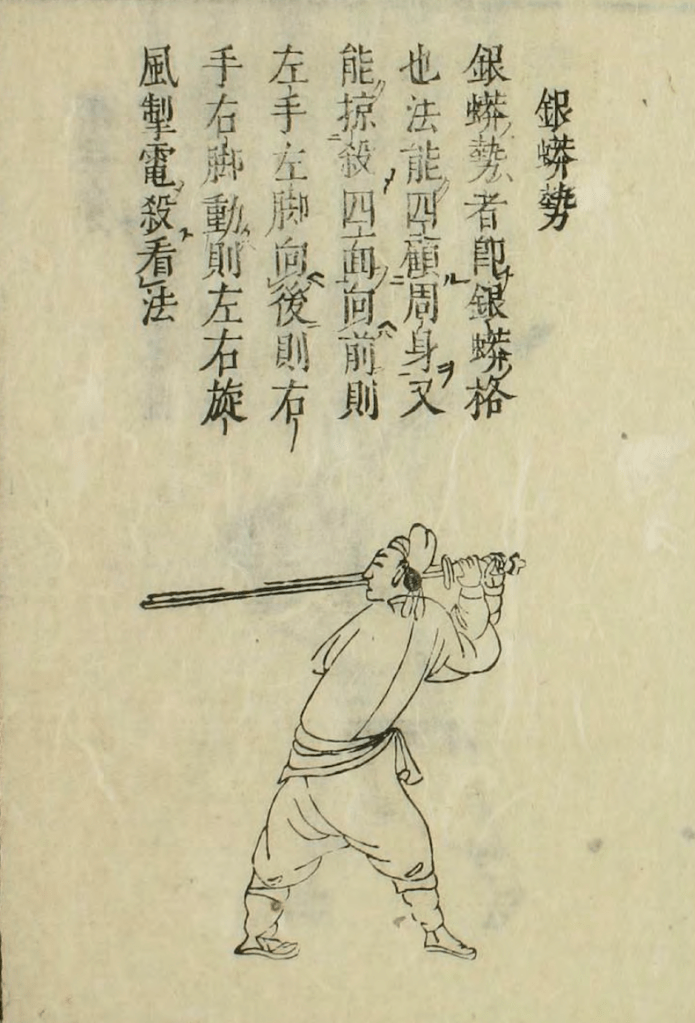 銀蟒勢
銀蟒勢者即銀蟒格
也法能四顧周身又
能掠殺四面向前則
左手左脚向後則右
手右脚動則左右旋
風掣電殺看法